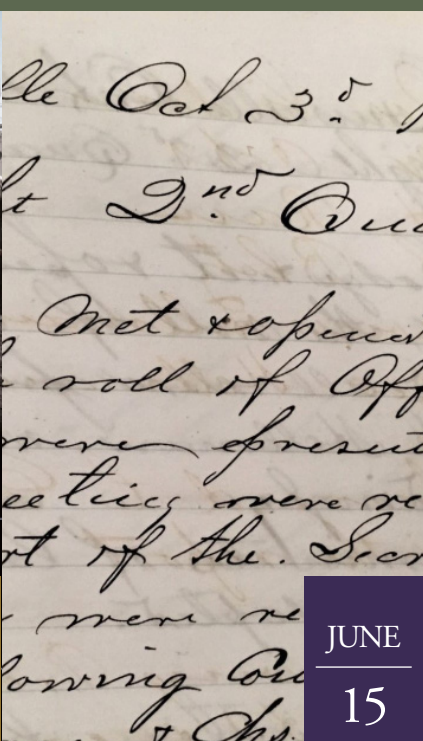 lle Oct 3.d
t 2.nd Qua
Met & opened
roll of Off
were present
eeting were re
rt of the. Secr
were re
lowing Com
& Chs.
JUNE
15